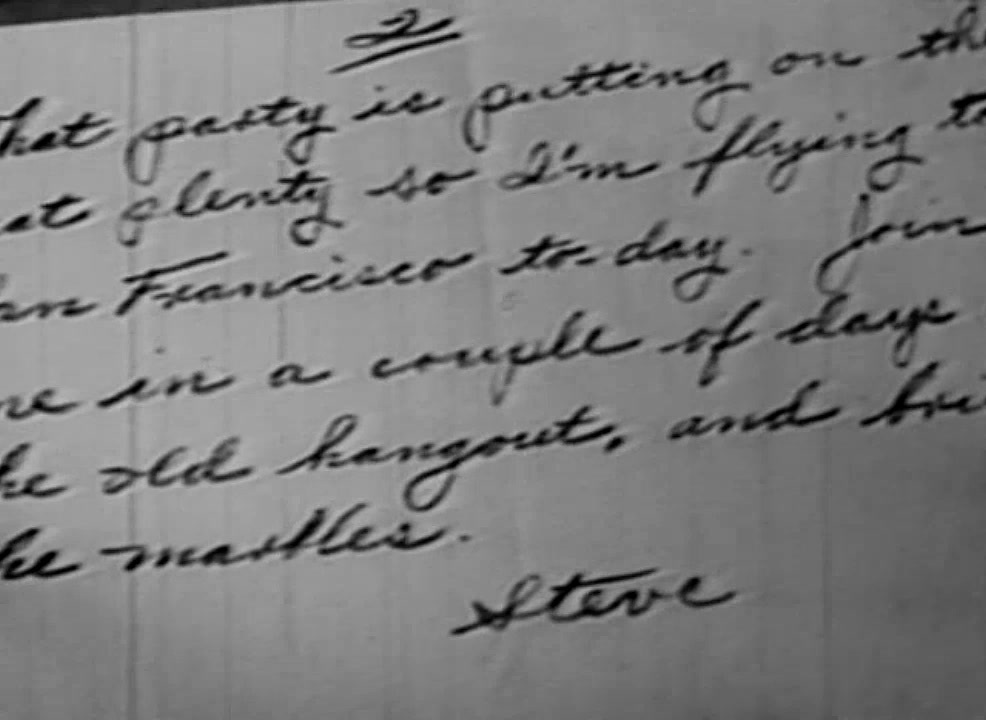 2
hat party is putting on th
at plenty so I'm flying to
an Francisco to-day. Join
me in a couple of days
he old hangout, and bri
he marbles.
Steve